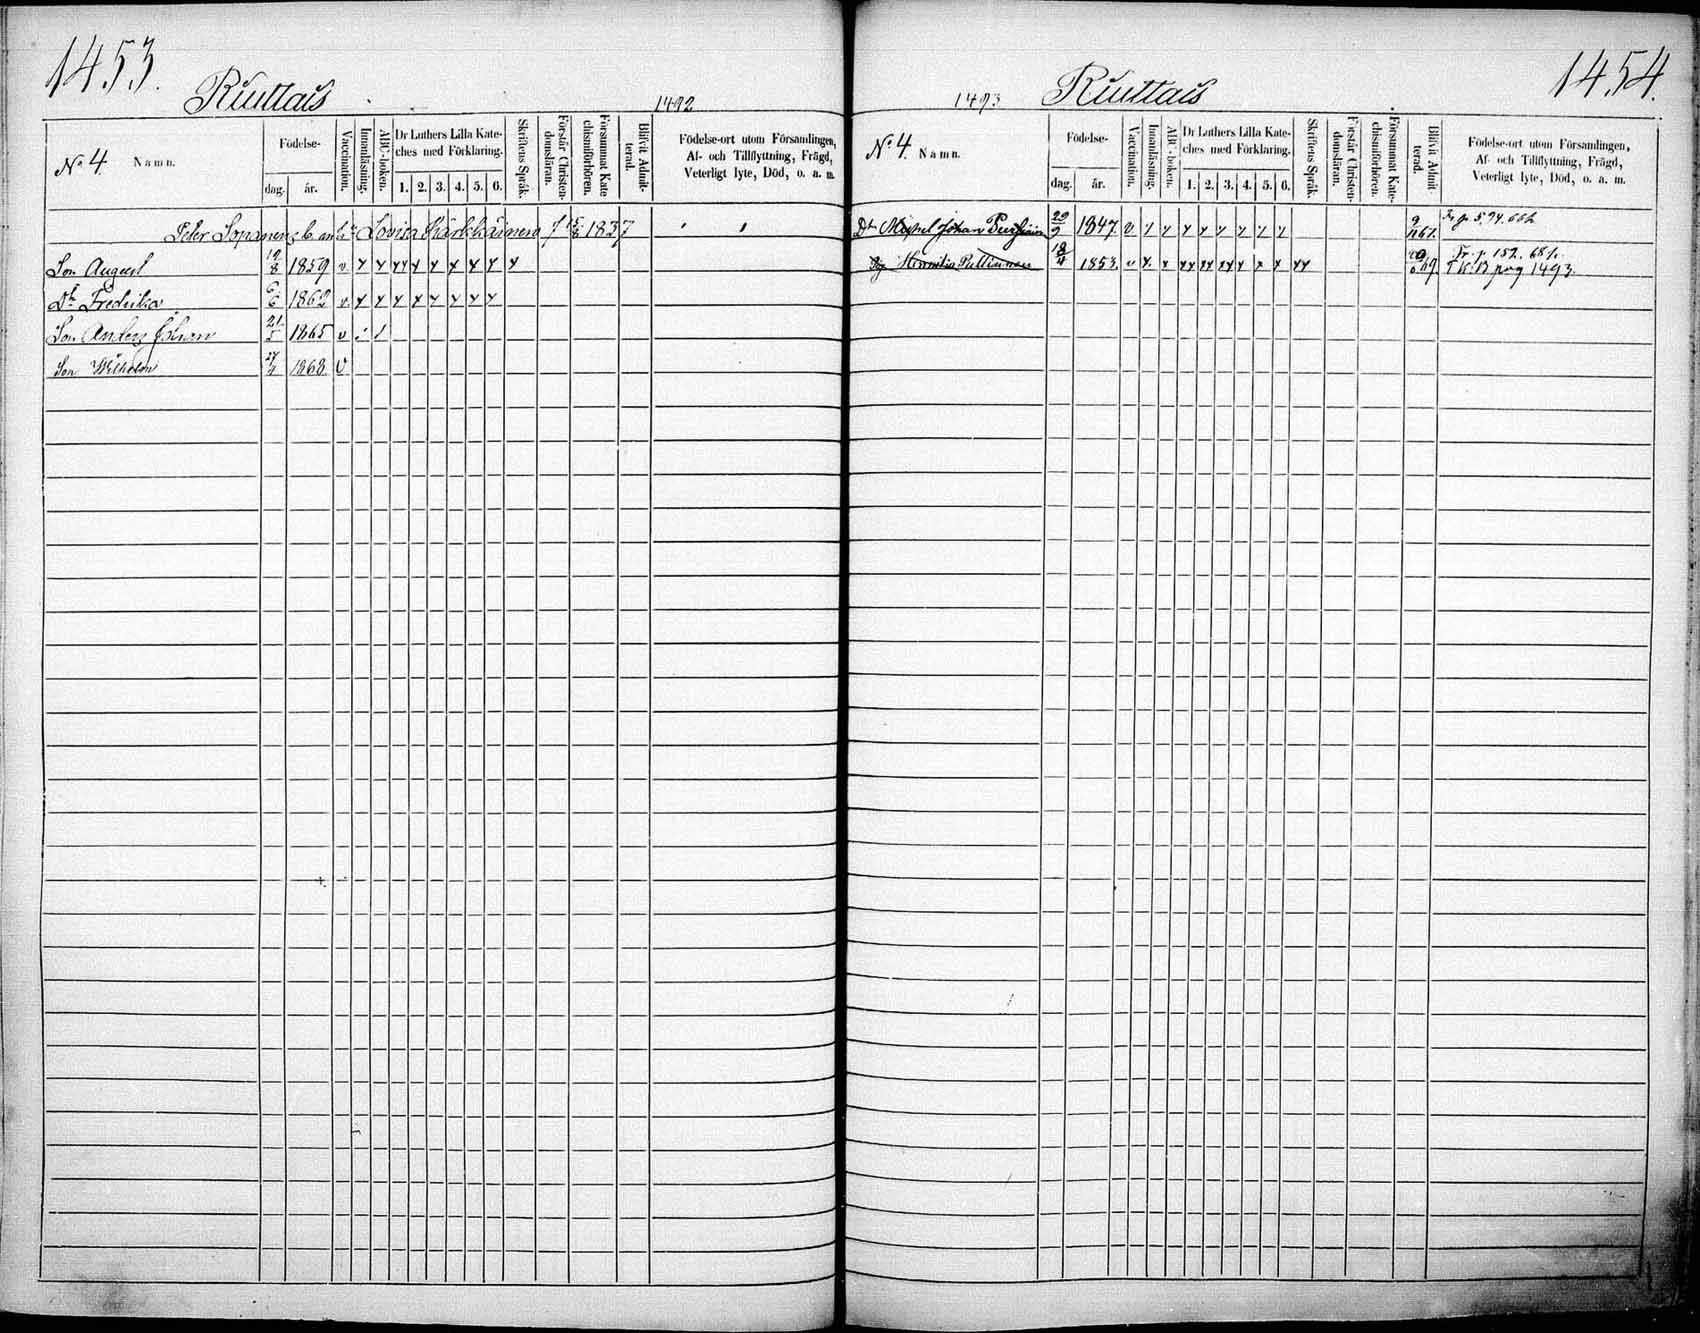 1453.
Ruuttais
1492
No 4 Namn.
Födelse-
dag. år.
Vaccination.
Innanläsning.
ABC-boken.
Dr Luthers Lilla Kate-
ches med Förklaring.
1. 2. 3. 4. 5. 6.
Skriftens Språk.
Förstår Christen-
domsläran.
Försummat Kate
chismiförhören.
Blifvit Admit-
terad.
Födelse-ort utom Församlingen,
Af- och Tillflyttning, Frägd,
Veterligt lyte, Död, o. a. m.
Peter Sopanens Lovisa Kärkkäinen f 15/8 1837
Son August 19/8 1859 v
Dr Fredrika 6/6 1862 v
Son Anders Johan 21/5 1865 v
Son Wilhelm 27/4 1868 V
1454.
Ruuttais
1493
No 4 Namn.
Födelse-
dag. år.
Vaccination.
Innanläsning.
ABC-boken.
Dr Luthers Lilla Kate-
ches med Förklaring.
1. 2. 3. 4. 5. 6.
Skriftens Språk.
Förstår Christen-
domsläran.
Försummat Kate-
chismiförhören.
Blifvit Admit
terad.
Födelse-ort utom Församlingen,
Af- och Tillflyttning, Frägd,
Veterligt lyte, Död, o. a. m.
Johan 29/9 1847. v
Puttinen 18/4 1853. v 69. Fr. p 152. 681.
T.K.B pag 1493